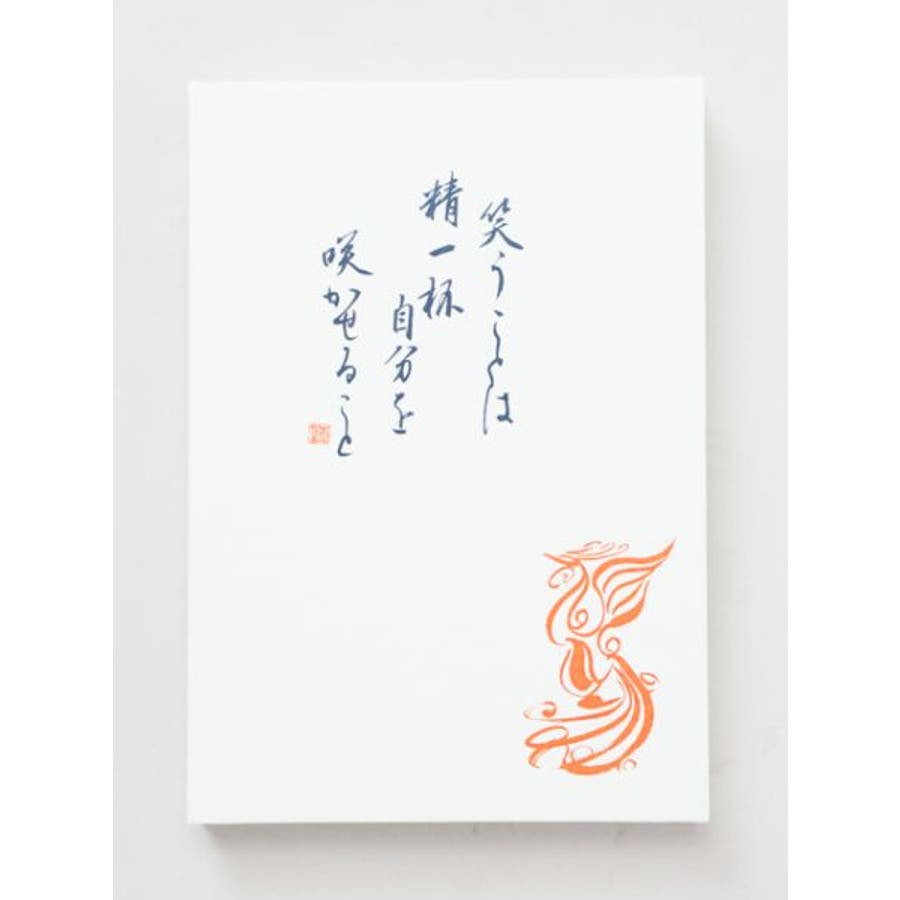 笑うことは
精一杯
自分を
咲かせること